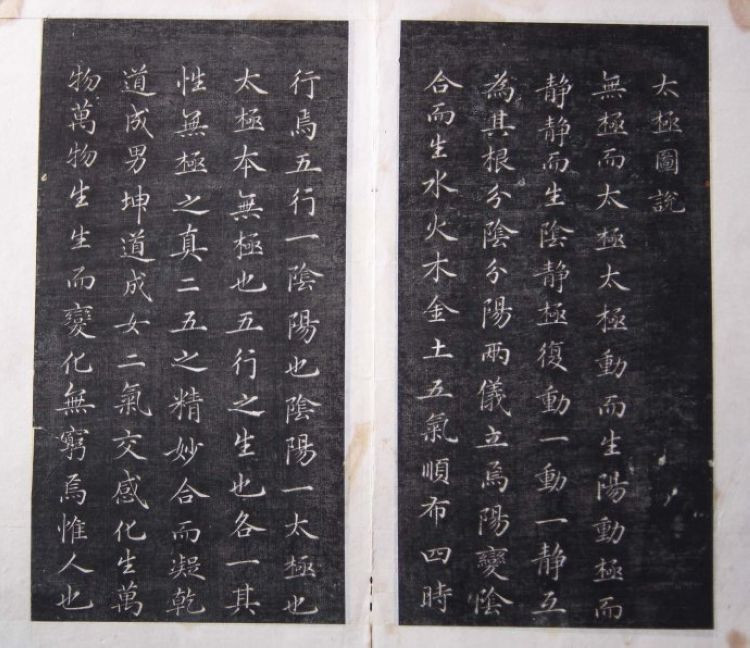 太極圖說
無極而太極太極動而生陽動極而
静静而生陰静極復動一動一静互
為其根分陰分陽兩儀立焉陽變陰
合而生水火木金土五氣順布四時
行焉五行一陰陽也陰陽一太極也
太極本無極也五行之生也各一其
性無極之真二五之精妙合而凝乾
道成男坤道成女二氣交感化生萬
物萬物生生而變化無窮焉惟人也